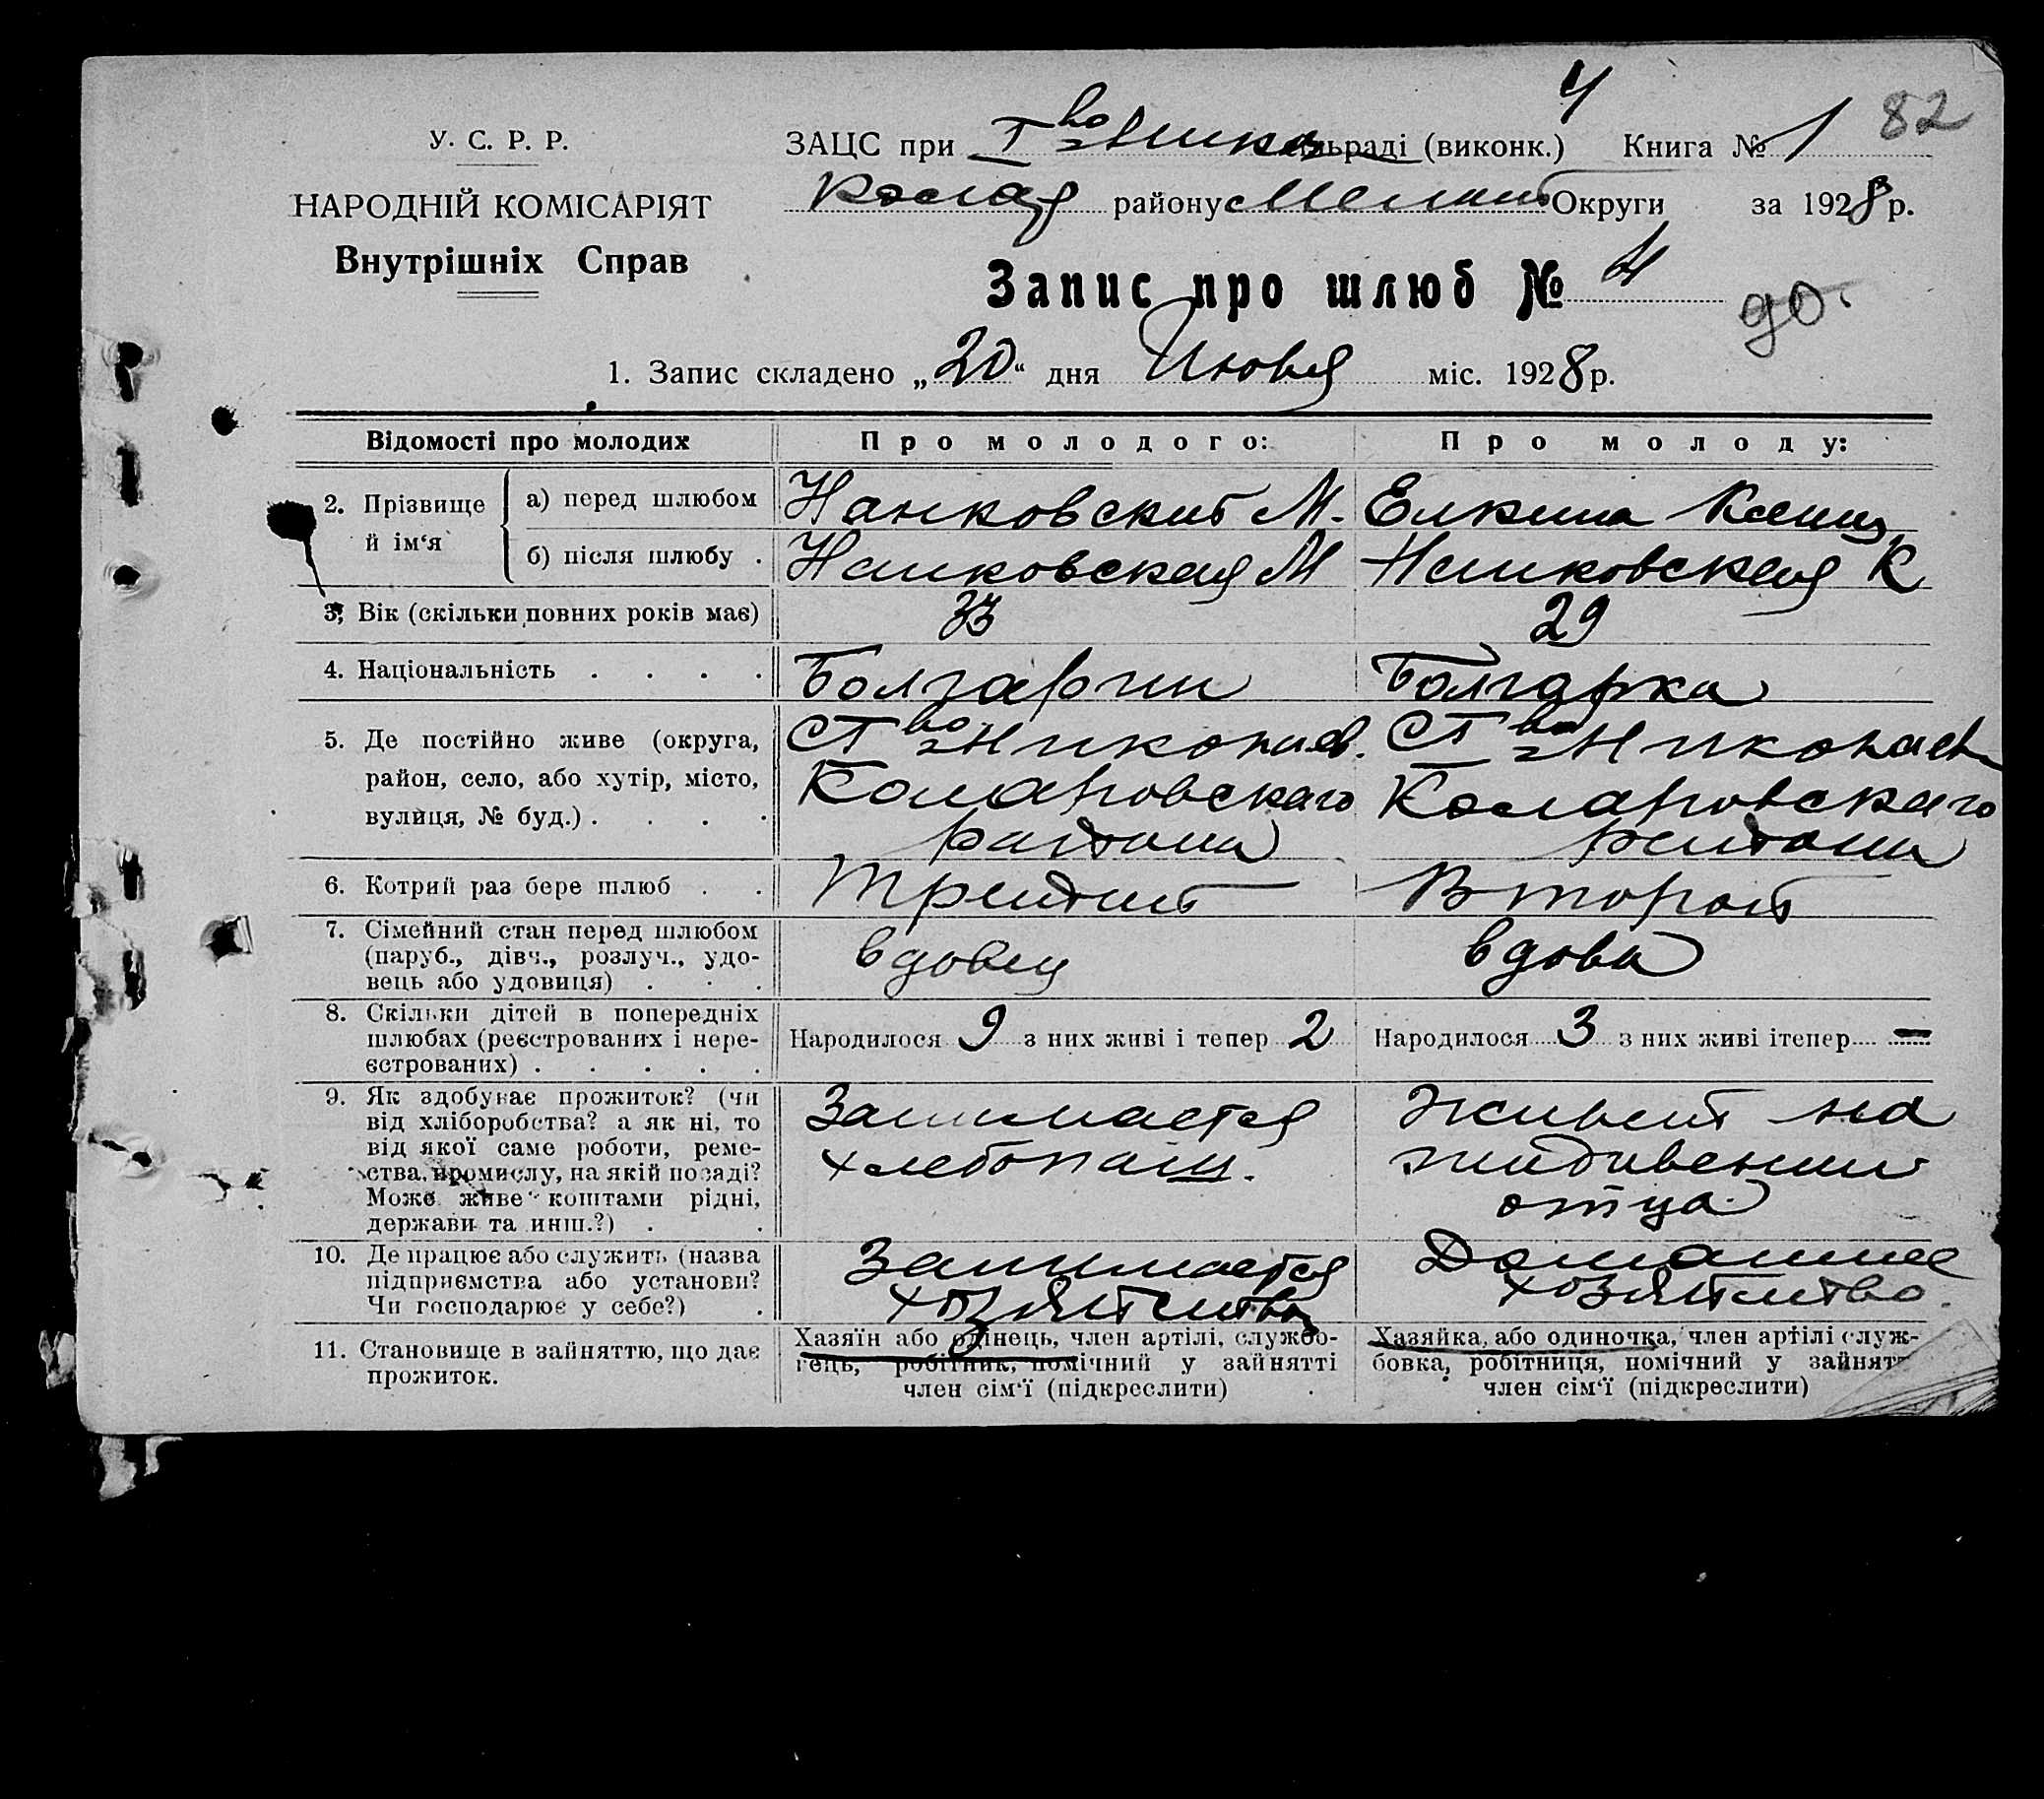 У. С. Р. Р.
НАРОДНІЙ КОМІСАРІЯТ
Внутрішніх Справ
4
82
ЗАЦС при Т во Нико сільраді (виконк.) Книга № 1
Комар району Мелит Округи за 1928 р.
Запис про шлюб № 4
90.
1. Запис складено „20“ дня Июня міс. 1928 р.
Відомості про молодих Про молодого: Про молоду:
2. Прізвище й ім‘я
а) перед шлюбом Нанковский М. Елкина Ксения
б) після шлюбу . Нанковская М Нанковская К
3. Вік (скільки повних років має) 33 29
4. Національність . . . . Болгарин Болгарка
5. Де постійно живе (округа, район, село, або хутір, місто, вулиця, № буд.) . . . .
СТ во Никопав.
Комаровскаго
района
СТ во Никопав
Комаровскаго
района
6. Котрий раз бере шлюб . . Третий Второй
7. Сімейний стан перед шлюбом
(паруб., дівч., розлуч., удо-
вець або удовиця) . . .
вдовец вдова
8. Скільки дітей в попередніх
шлюбах (реєстрованих і нере-
єстрованих) . . . . .
Народилося 9 з них живі і тепер 2
Народилося 3 з них живі ітепер —
9. Як здобуває прожиток? (чи
від хліборобства? а як ні, то
від якої саме роботи, реме-
ства, промислу, на якій посаді?
Може живе коштами рідні,
держави та инш.?) . .
Занимается
хлебопаш.
живет на
иждивении
отца
10. Де працює або служить (назва
підприємства або установи?
Чи господарює у себе?) .
Занимается
хозяйство
Домашнее
хозяйство.
11. Становище в зайняттю, що дає
прожиток.
Хазяїн або одінець, член артілі, службо-
вець, робітник, помічний у зайнятті
член сім‘ї (підкреслити)
Хазяйка, або одиночка, член артілі служ-
бовка, робітниця, помічний у зайнятт
член сім‘ї (підкреслити)